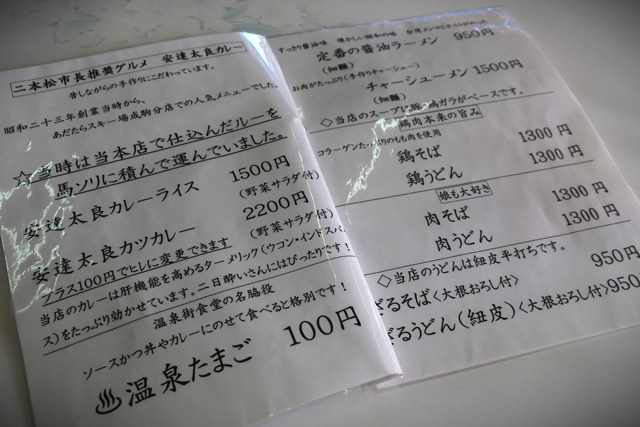 二本松市長推奨グルメ　安達太良カレー
昔しながらの手作りにこだわっています。
昭和二十三年創業当時から、
あだたらスキー場成駒分店での人気メニューでした。
☆当時は当本店で仕込んだルーを
馬ソリに積んで運んでいました。
安達太良カレーライス　1500円
(野菜サラダ付)
安達太良カツカレー　2200円
(野菜サラダ付)
プラス100円でヒレに変更できます
当店のカレーは肝機能を高めるターメリック(ウコン・インドスパイ
ス)をたっぷり効かせています。二日酔いさんにはぴったりです！
温泉街食堂の名脇役
ソースかつ丼やカレーにのせて食べると格別です！
♨温泉たまご　100円
すっきり醤油味　懐かしい昭和の味
定番の醤油ラーメン　950円
(細麺)
お肉がたっぷり(手作りチャーシュー)
チャーシューメン　1500円
(細麺)
◇当店のスープは豚・鶏ガラがベースです。
鶏肉本来の旨み
コラーゲンたっぷりのもも肉を使用
鶏そば　1300円
鶏うどん　1300円
娘も大好き
肉そば　1300円
肉うどん　1300円
◇当店のうどんは紐皮手打ちです。
ざるそば〈大根おろし付〉　950円
ざるうどん(紐皮)〈大根おろし付〉　950